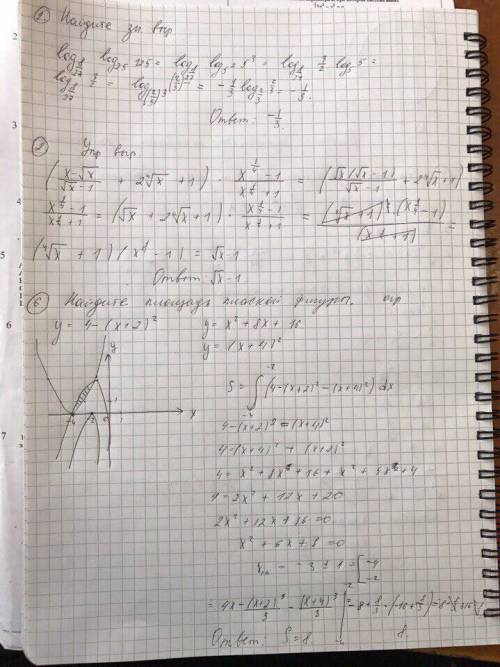 ① Найдите зн. выр
log_{8/27} log_{25} 125 = log_{8/27} log_{5^2} 5^3 = log_{8/27} 3/2 log_5 5 =
log_{8/27} 3/2 = log_{(2/3)^3} (2/3)^{-1} = -1/3 log_{2/3} 2/3 = -1/3.
Ответ: -1/3.
Упр выр.
((x-√x)/(√x-1) + 2∜x + 1) · (x^{1/4}-1)/(x^{1/4}+1) = (√x(√x-1)/(√x-1) + 2∜x + 1)
(x^{1/4}-1)/(x^{1/4}+1) = (√x + 2∜x + 1) · (x^{1/4}-1)/(x^{1/4}+1) = (∜x+1)^2 · (x^{1/4}-1)/(x^{1/4}+1) =
(∜x + 1)(x^{1/4}-1) = √x-1
Ответ: √x-1
⑥ Найдите площадь плоской фигуры, огр
y = 4-(x+2)^2 y = x^2+8x+16
y = (x+4)^2
y
x
-4 -2 0 1
S = ∫_{-4}^{-2} (4-(x+2)^2-(x+4)^2) dx
4-(x+2)^2 = (x+4)^2
4=(x+4)^2 + (x+2)^2
4 = x^2+8x+16 + x^2 + 4x+4
4 = 2x^2 + 12x + 20
2x^2 + 12x + 16 = 0
x^2 + 6x + 8 = 0
x_{1,2} = -3 ± 1 = [-4 -2
= 4x - (x+2)^3/3 - (x+4)^3/3
Ответ: S = 8.
8.
2
3
5
6
7